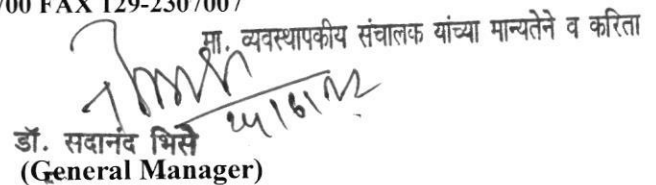 700 FAX 129-2307007
मा. व्यवस्थापकीय संचालक यांच्या मान्यतेने व करिता
डॉ. सदानंद भिसे
(General Manager)